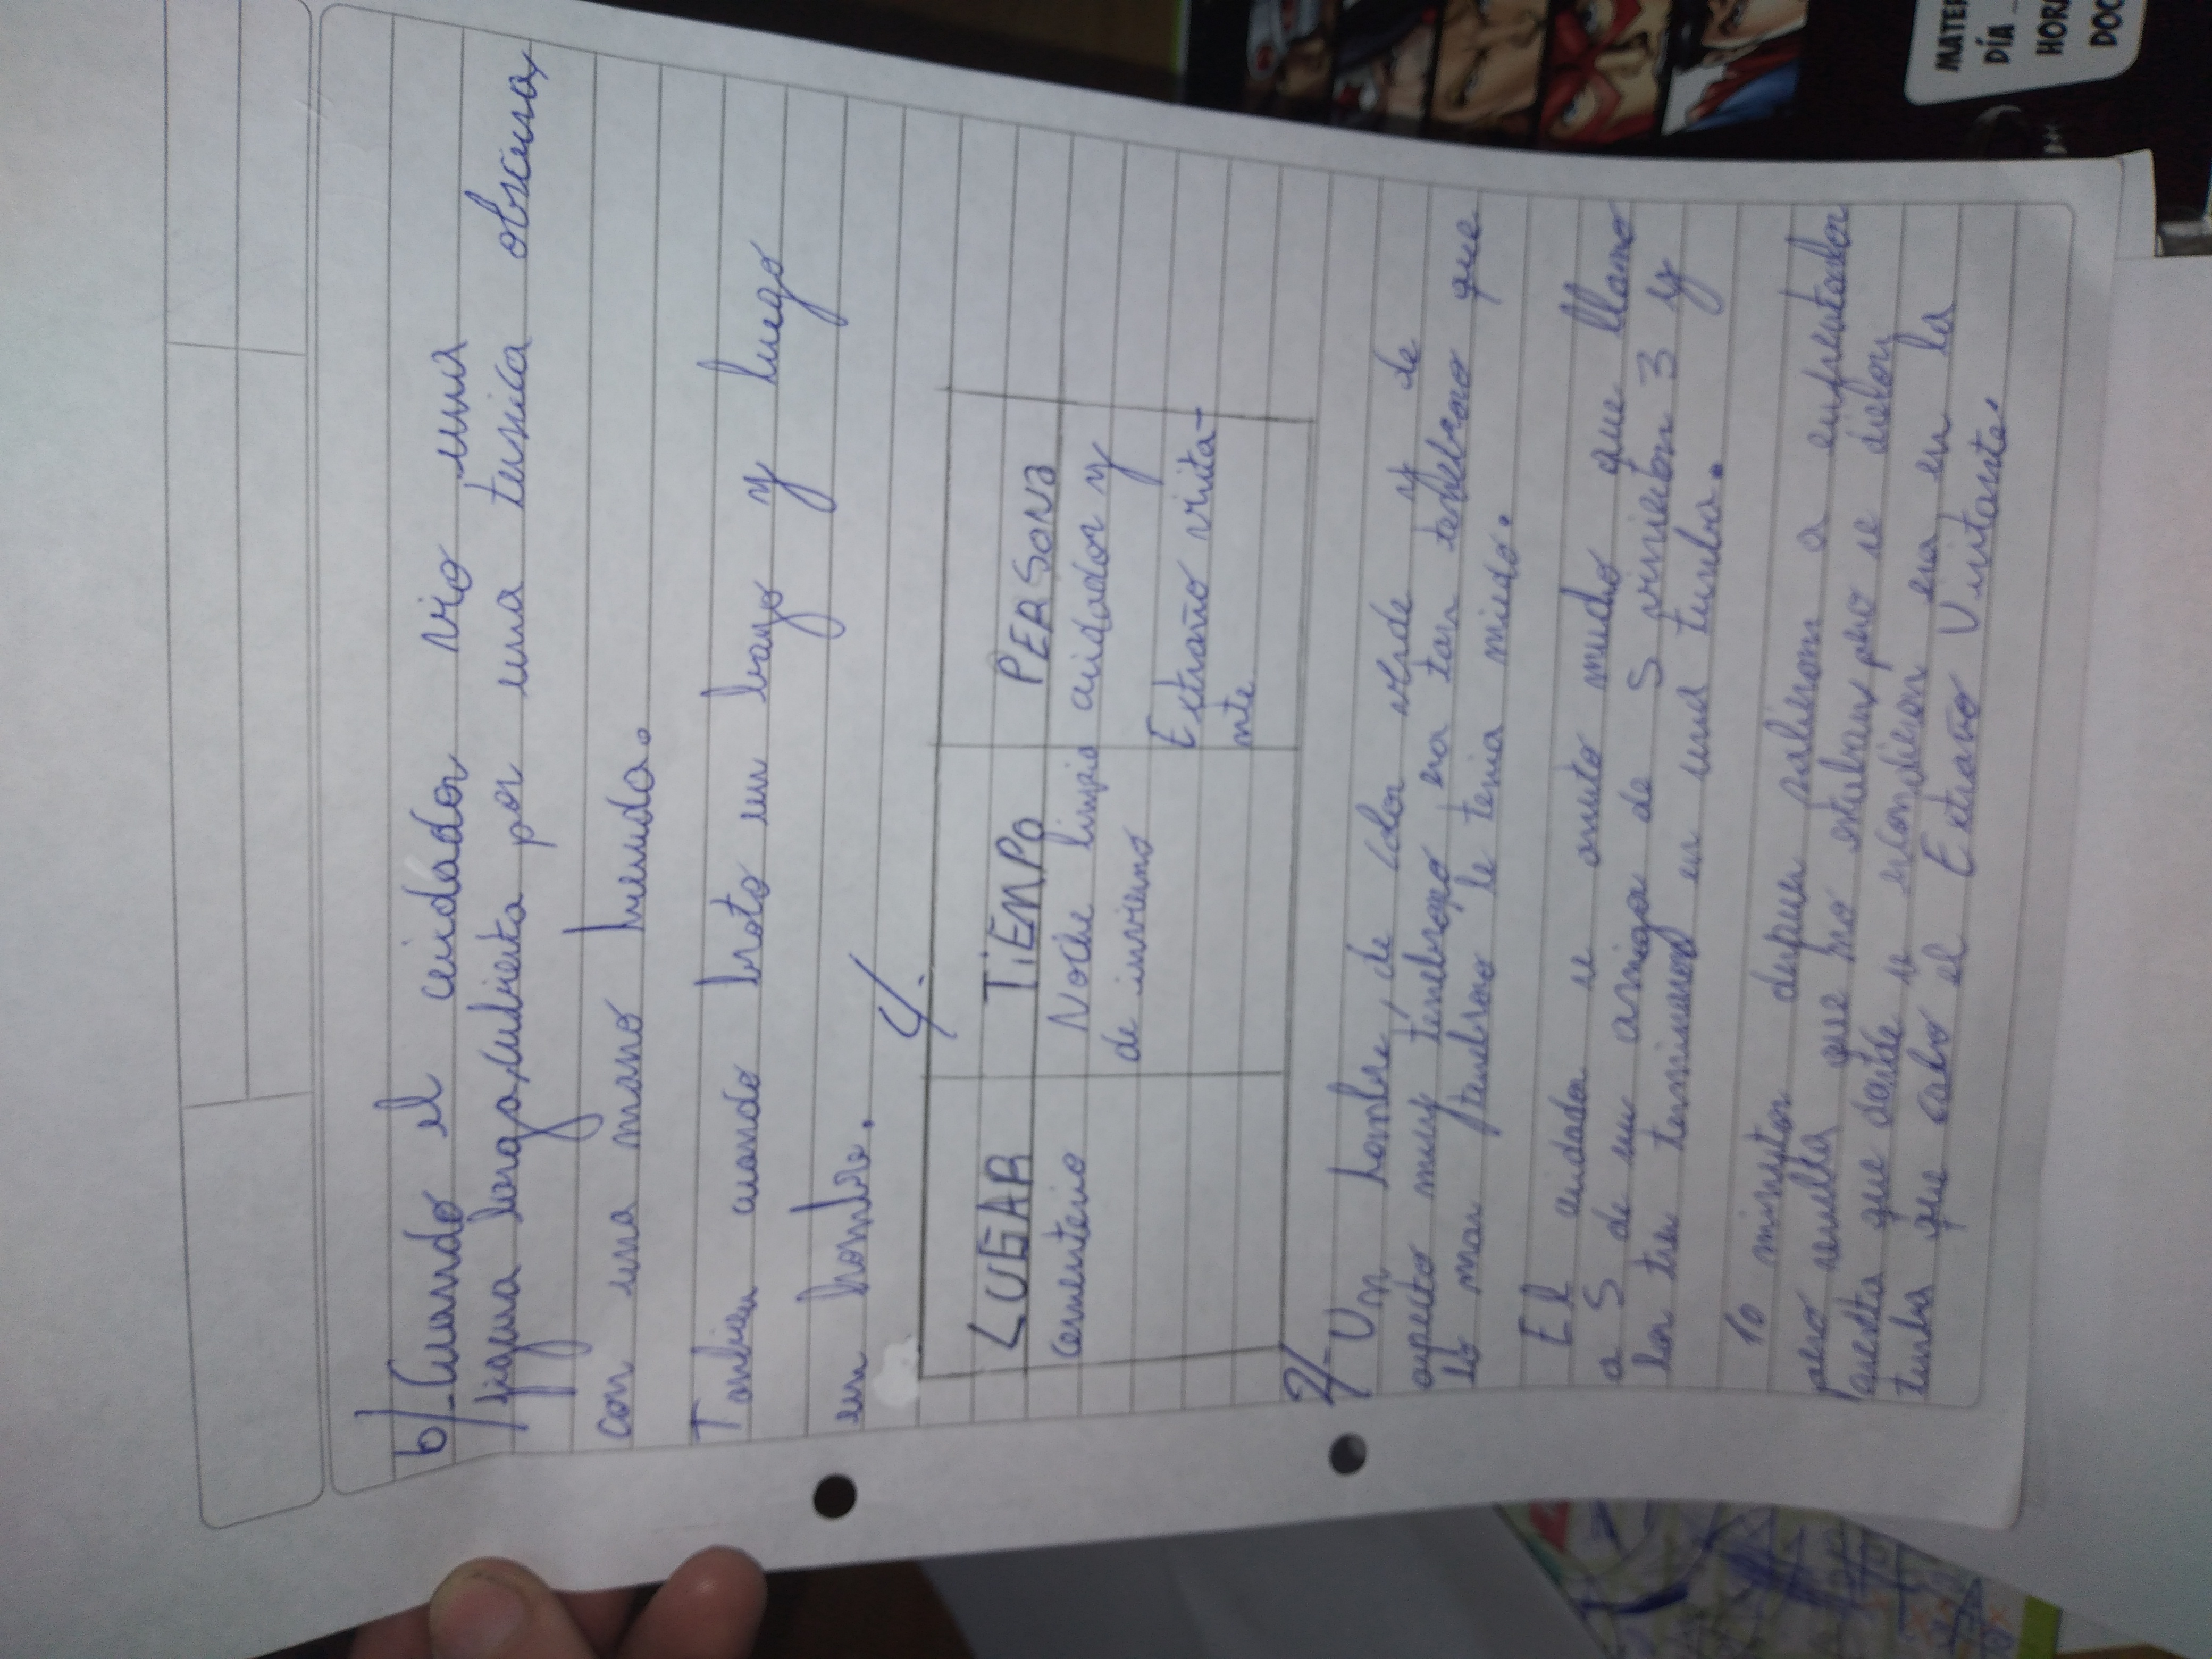 b/-Cuando el cuidador vio una
figura larga, cubierta por una tunica obscura,
con una mano huesuda.
Tambien cuando broto un brazo y luego
un hombro.
c/-
LUGAR TiEMPO PERSONA
cementerio Noche limpia cuidador y
de invierno
Extraño visita-
nte
2/-Un hombre, de color verde y de
aspecto muy tenebroso era tan tenebroso que
lo mas tenebroso le tenia miedo.
El cuidador se asusto mucho que llamo
a 5 de sus amigos de 5 vinieron 3 y
los tres terminaron en una tumba.
10 minutos despues salieron a enfrentarlos
pero resulta que no estaban pero se dieron
cuenta que donde se escondieron era en la
tumba que cabo el Extraño Visitante.
MATER
DÍA
HORA
DOC